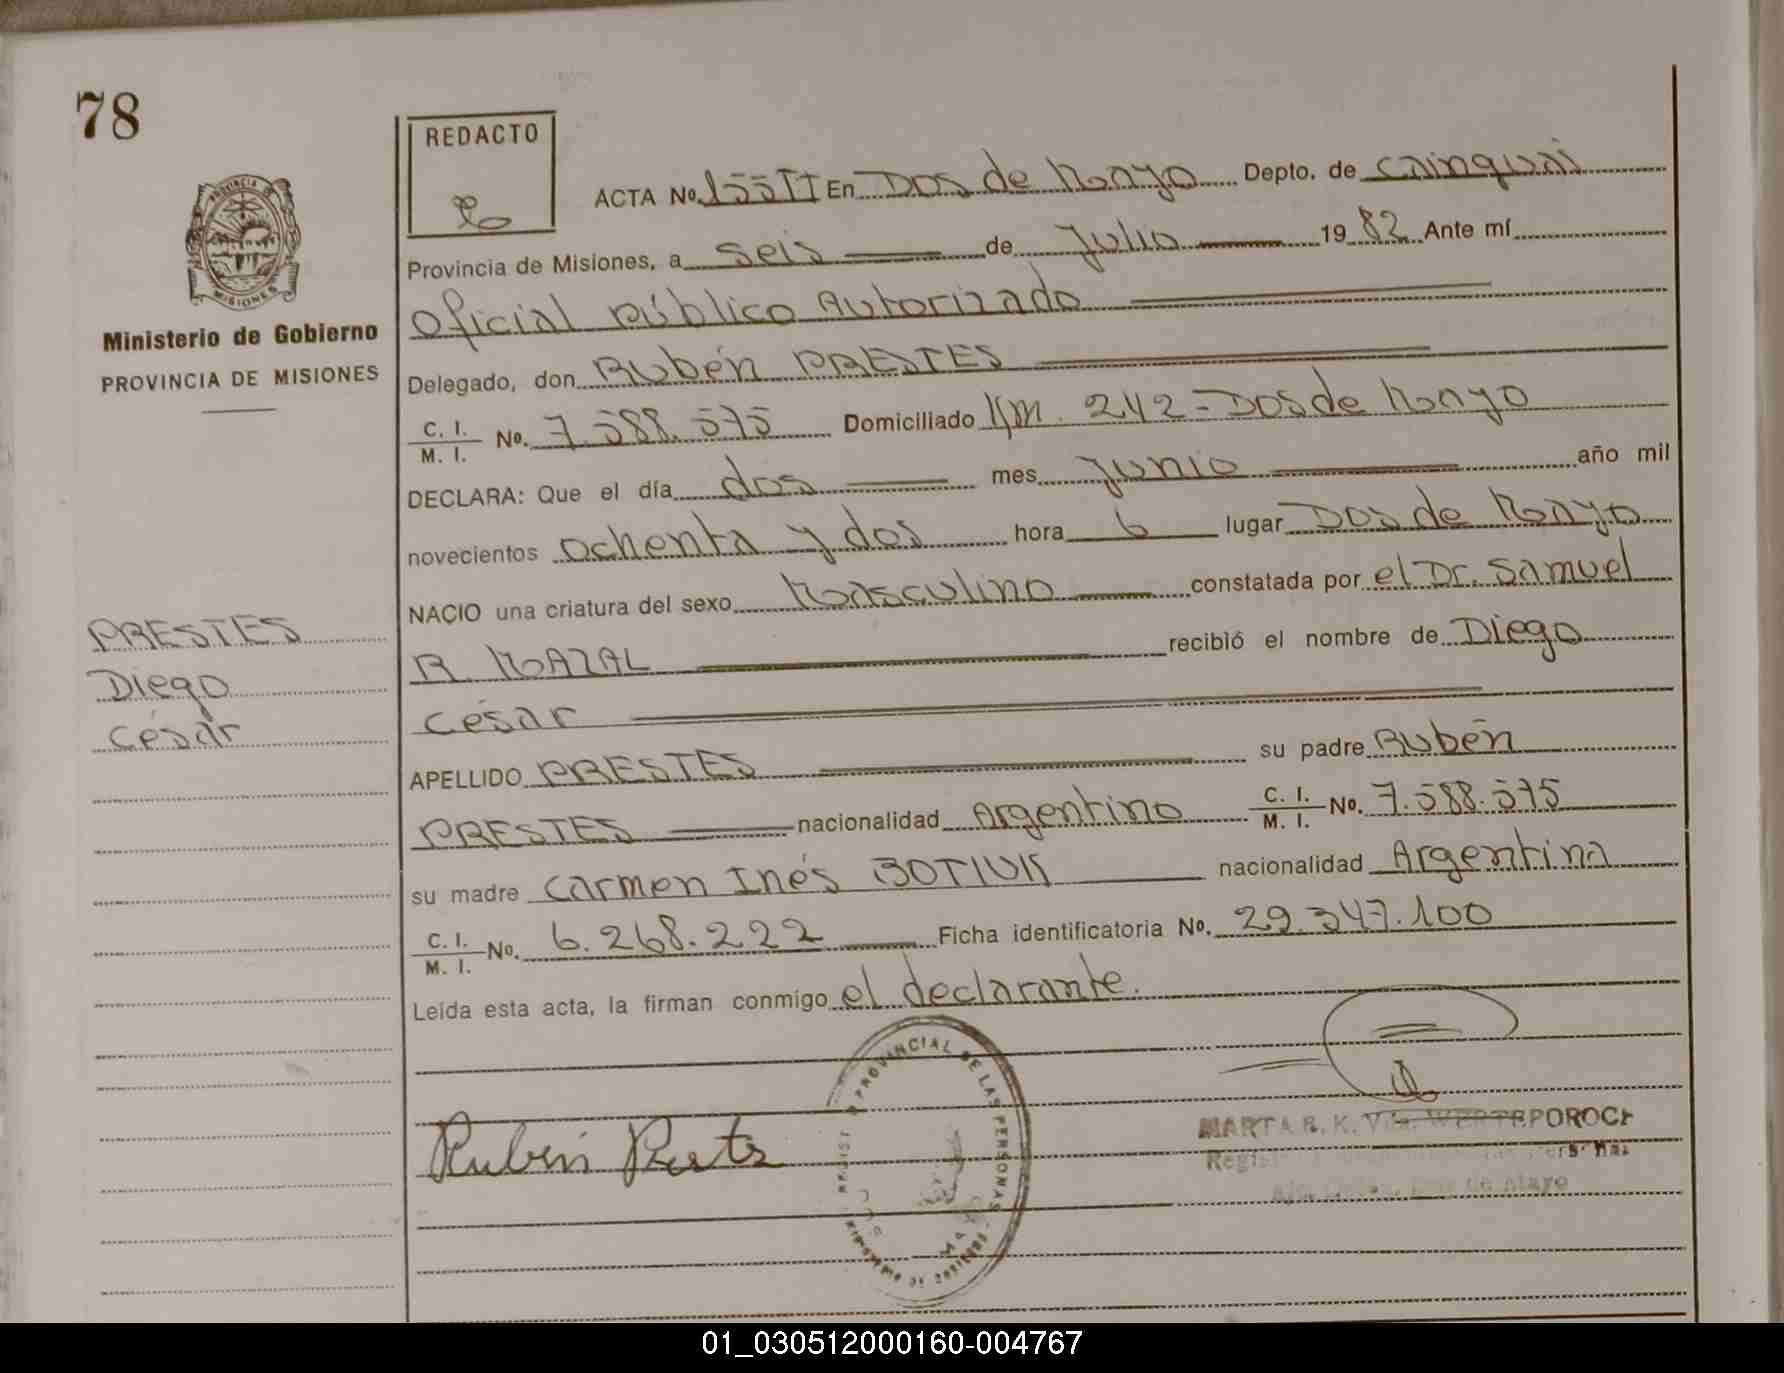 78
REDACTO
ACTA No. 155TI En Dos de Mayo Depto. de Cainguai
Provincia de Misiones, a seis de Julio 1982 Ante mí
Oficial Público Autorizado
Delegado, don Rubén PRESTES
C. I. / M. I. No. 7.588.575 Domiciliado Km. 242 - Dos de Mayo
DECLARA: Que el día dos mes Junio año mil
novecientos ochenta y dos hora 6 lugar Dos de Mayo
NACIO una criatura del sexo Masculino constatada por el Dr. Samuel
R. MAZAL recibió el nombre de Diego
César
APELLIDO PRESTES su padre Rubén
PRESTES nacionalidad Argentino C. I. / M. I. No. 7.588.575
su madre Carmen Inés BOTIUK nacionalidad Argentina
C. I. / M. I. No. 6.268.222 Ficha identificatoria No. 29.347.100
Leída esta acta, la firman conmigo el declarante.
PROVINCIA DE
MISIONES
Ministerio de Gobierno
PROVINCIA DE MISIONES
PRESTES
Diego
César
PROVINCIAL DE LAS PERSONAS
MARTA R. K. Vda.
de Mayo
01_030512000160-004767